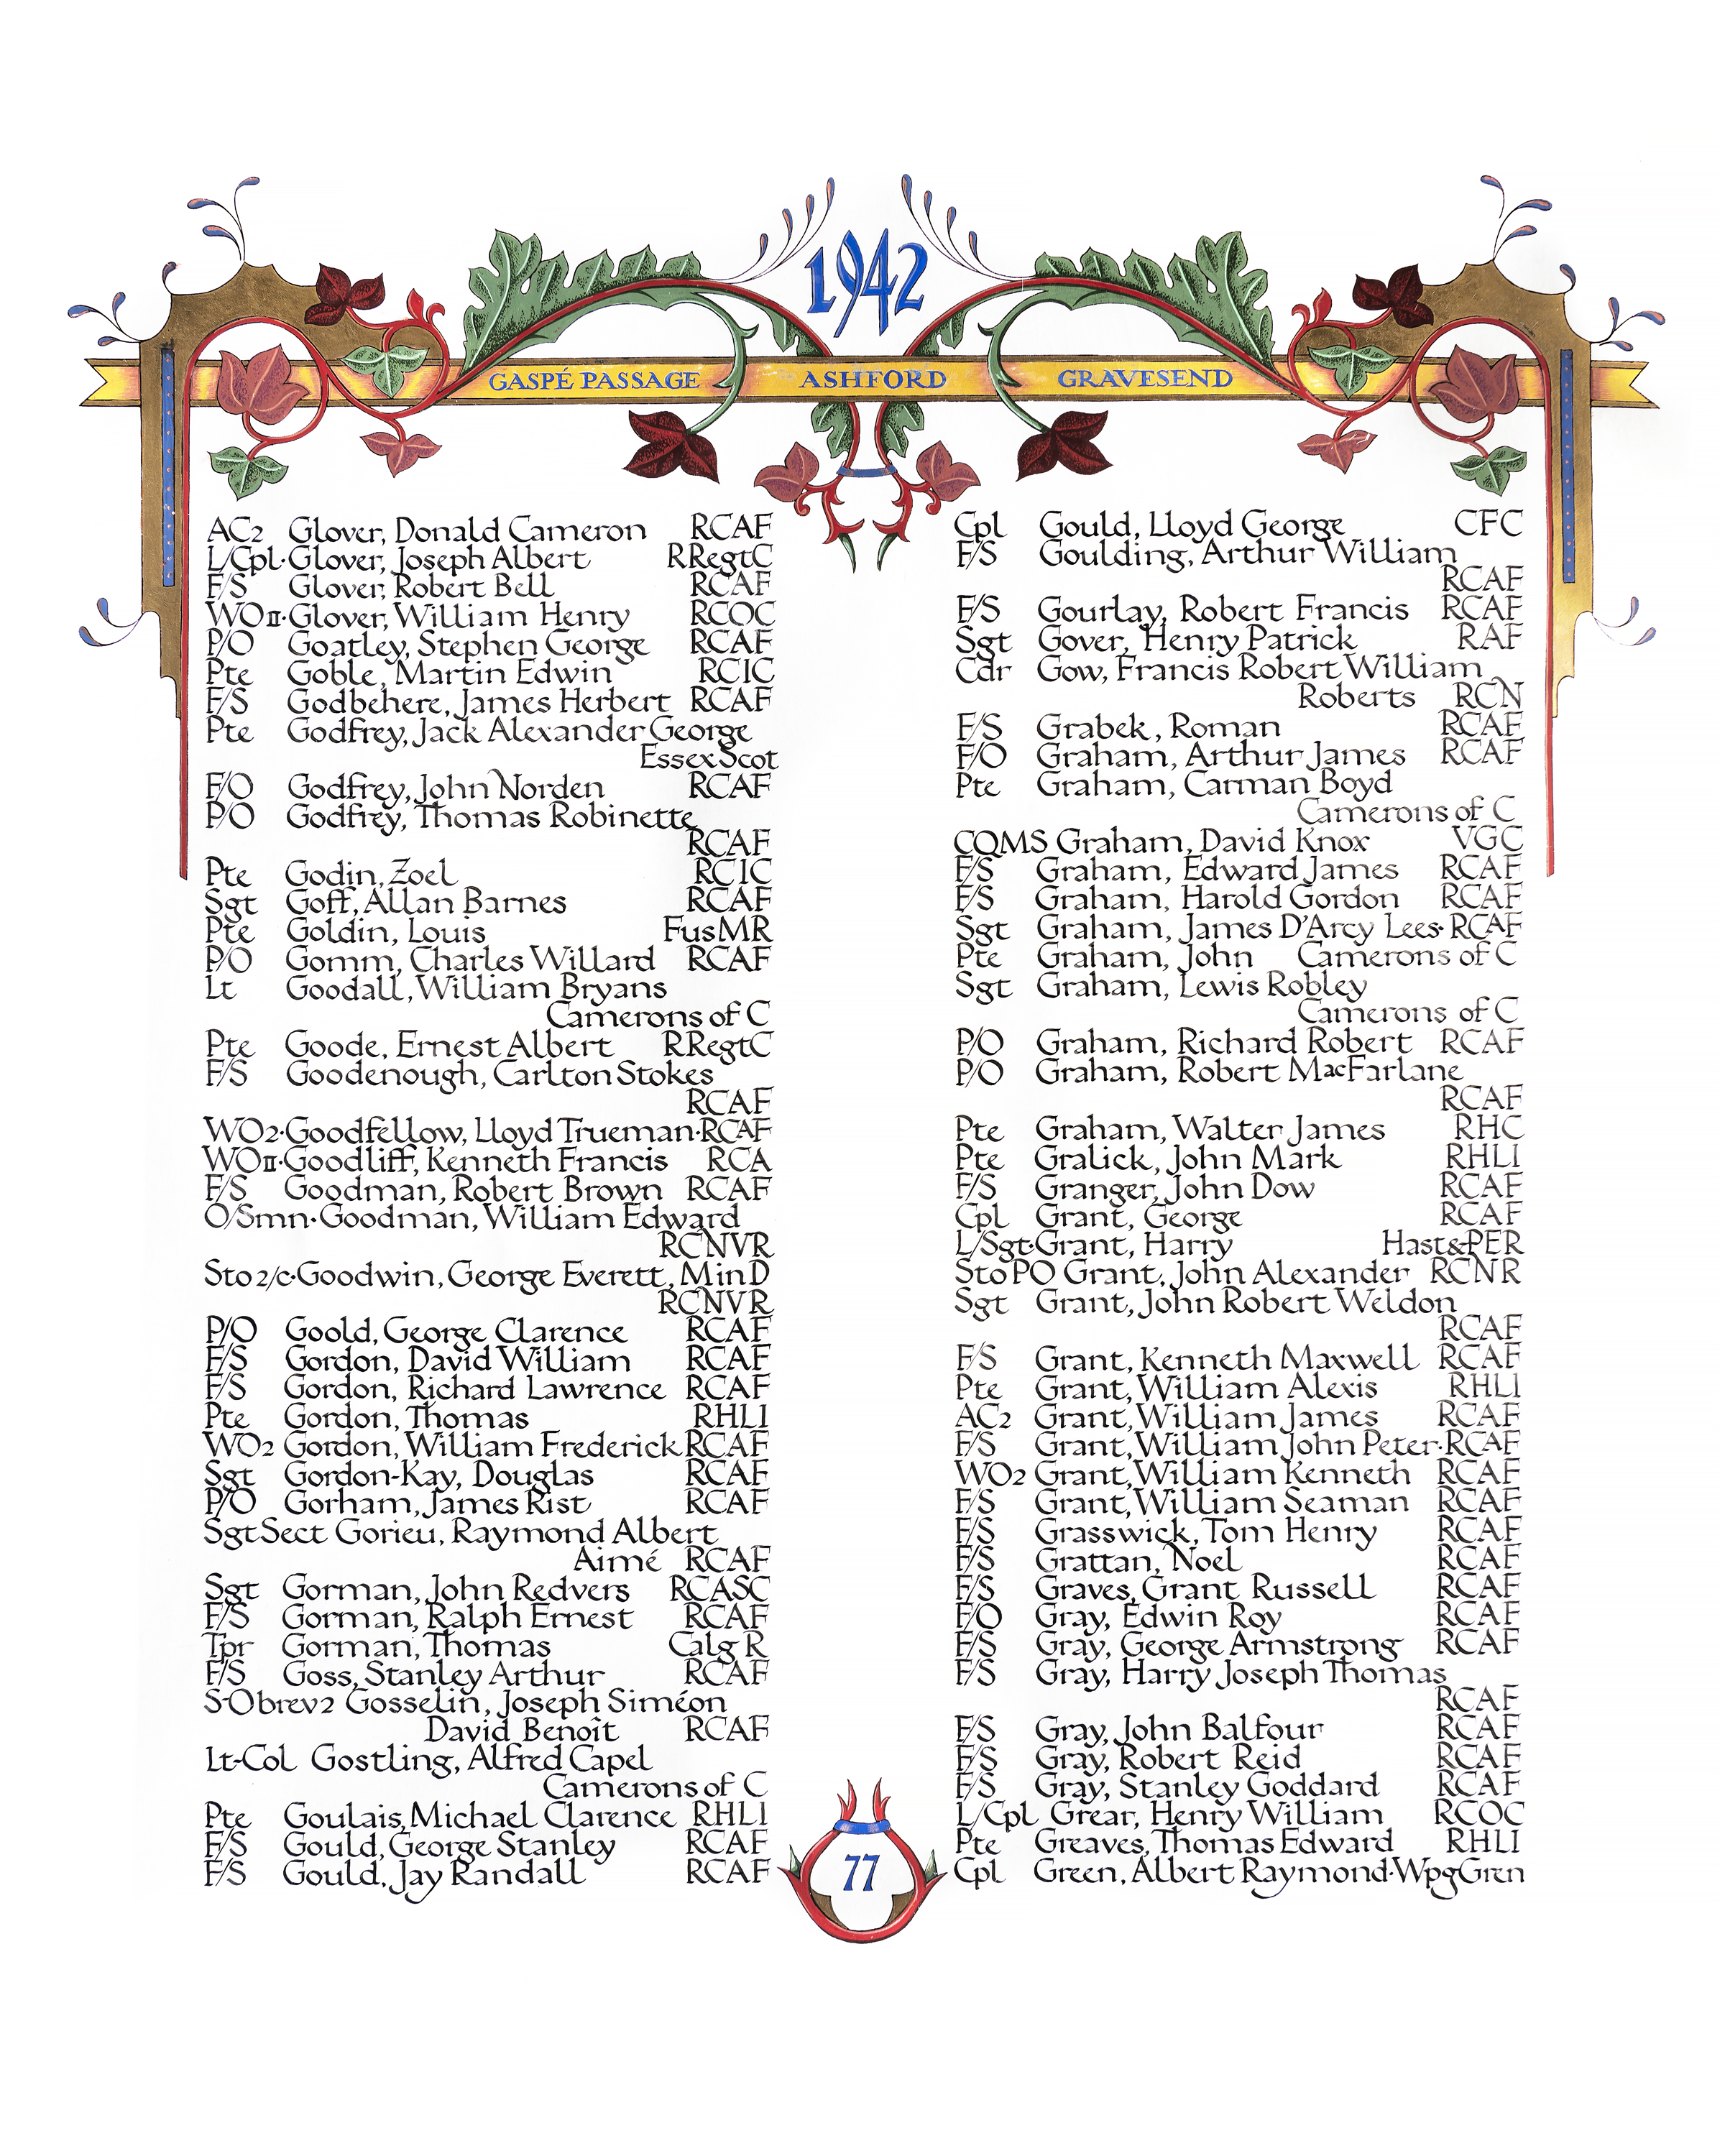 1942
GASPÉ PASSAGE ASHFORD GRAVESEND
AC2 Glover, Donald Cameron RCAF
L/Cpl·Glover, Joseph Albert RRegtC
F/S Glover, Robert Bell RCAF
WOII·Glover, William Henry RCOC
P/O Goatley, Stephen George RCAF
Pte Goble, Martin Edwin RCIC
F/S Godbehere, James Herbert RCAF
Pte Godfrey, Jack Alexander George
Essex Scot
F/O Godfrey, John Norden RCAF
P/O Godfrey, Thomas Robinette
RCAF
Pte Godin, Zoel RCIC
Sgt Goff, Allan Barnes RCAF
Pte Goldin, Louis FusMR
P/O Gomm, Charles Willard RCAF
Lt Goodall, William Bryans
Camerons of C
Pte Goode, Ernest Albert RRegtC
F/S Goodenough, Carlton Stokes
RCAF
WO2·Goodfellow, Lloyd Trueman·RCAF
WOII·Goodliff, Kenneth Francis RCA
F/S Goodman, Robert Brown RCAF
O/Smn·Goodman, William Edward
RCNVR
Sto 2/c·Goodwin, George Everett, MinD
RCNVR
P/O Goold, George Clarence RCAF
F/S Gordon, David William RCAF
F/S Gordon, Richard Lawrence RCAF
Pte Gordon, Thomas RHLI
WO2 Gordon, William Frederick RCAF
Sgt Gordon-Kay, Douglas RCAF
P/O Gorham, James Rist RCAF
Sgt Sect Gorieu, Raymond Albert
Aimé RCAF
Sgt Gorman, John Redvers RCASC
F/S Gorman, Ralph Ernest RCAF
Tpr Gorman, Thomas Calg R
F/S Goss, Stanley Arthur RCAF
S-Obrev2 Gosselin, Joseph Siméon
David Benoît RCAF
Lt-Col Gostling, Alfred Capel
Camerons of C
Pte Goulais, Michael Clarence RHLI
F/S Gould, George Stanley RCAF
F/S Gould, Jay Randall RCAF
Cpl Gould, Lloyd George CFC
F/S Goulding, Arthur William
RCAF
F/S Gourlay, Robert Francis RCAF
Sgt Gover, Henry Patrick RAF
Cdr Gow, Francis Robert William
Roberts RCN
F/S Grabek, Roman RCAF
F/O Graham, Arthur James RCAF
Pte Graham, Carman Boyd
Camerons of C
CQMS Graham, David Knox VGC
F/S Graham, Edward James RCAF
F/S Graham, Harold Gordon RCAF
Sgt Graham, James D'Arcy Lees·RCAF
Pte Graham, John Camerons of C
Sgt Graham, Lewis Robley
Camerons of C
P/O Graham, Richard Robert RCAF
P/O Graham, Robert MacFarlane
RCAF
Pte Graham, Walter James RHC
Pte Gralick, John Mark RHLI
F/S Granger, John Dow RCAF
Cpl Grant, George RCAF
L/Sgt·Grant, Harry Hast&PER
Sto PO Grant, John Alexander RCNR
Sgt Grant, John Robert Weldon
RCAF
F/S Grant, Kenneth Maxwell RCAF
Pte Grant, William Alexis RHLI
AC2 Grant, William James RCAF
F/S Grant, William John Peter·RCAF
WO2 Grant, William Kenneth RCAF
F/S Grant, William Seaman RCAF
F/S Grasswick, Tom Henry RCAF
F/S Grattan, Noel RCAF
F/S Graves, Grant Russell RCAF
F/O Gray, Edwin Roy RCAF
F/S Gray, George Armstrong RCAF
F/S Gray, Harry Joseph Thomas
RCAF
F/S Gray, John Balfour RCAF
F/S Gray, Robert Reid RCAF
F/S Gray, Stanley Goddard RCAF
L/Cpl Grear, Henry William RCOC
Pte Greaves, Thomas Edward RHLI
Cpl Green, Albert Raymond·WpgGren
77